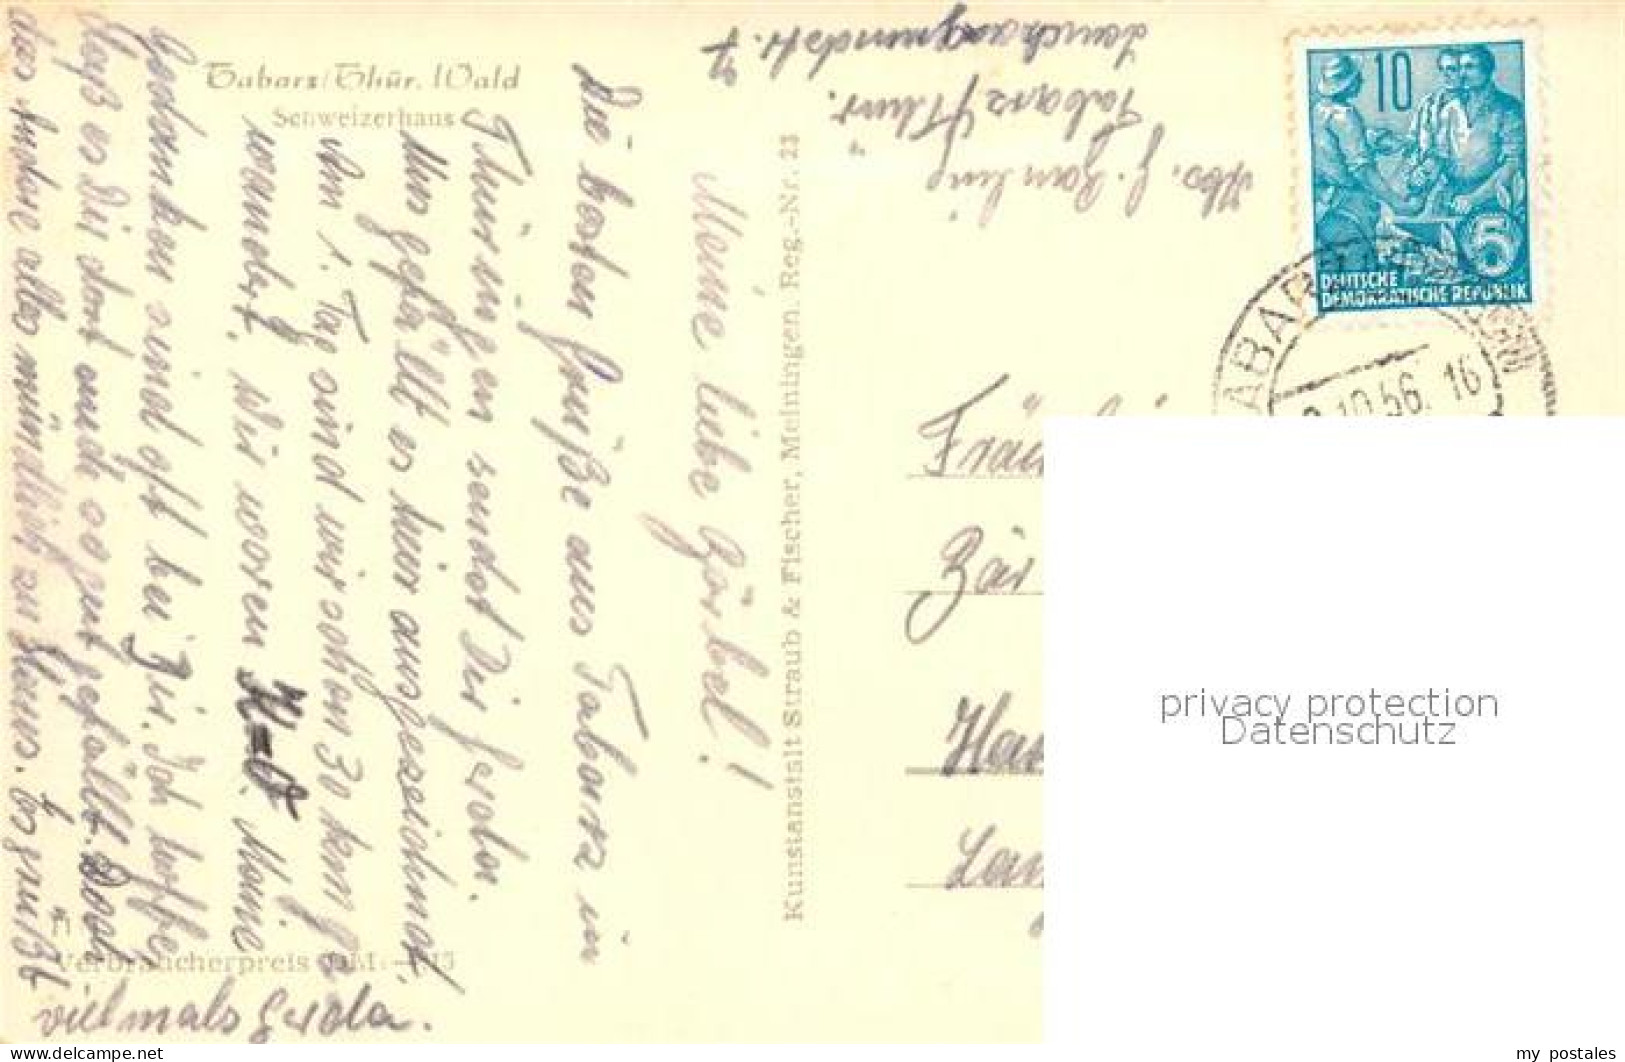 Tabarz/Thür. Wald
Schweizerhaus
Meine liebe Gärbel!
Die besten Grüße aus Tabarz in
Thüringen sendet Dir Gerda.
Uns gefällt es hier ausgezeichnet.
Am 1. Tag sind wir schon 30 km ge-
wandert. Wir waren Meine
Gedanken sind oft bei Dir. Ich hoffe
daß es Dir dort auch so gut gefällt. Doch
das andere alles mündlich zu Haus. Es grüßt
vielmals Gerda.
11
Verbraucherpreis DM
Kunstanstalt Straub & Fischer, Meiningen. Reg.-Nr. 23
Abs. G.
Tabarz/Thür.
Lauchagrundstr. 7
10
5
DEUTSCHE
DEMOKRATISCHE REPUBLIK
TABARZ
10.56. 16
Fräu
Bär
Ha
Lan
privacy protection
Datenschutz
www.delcampe.net
my_postales